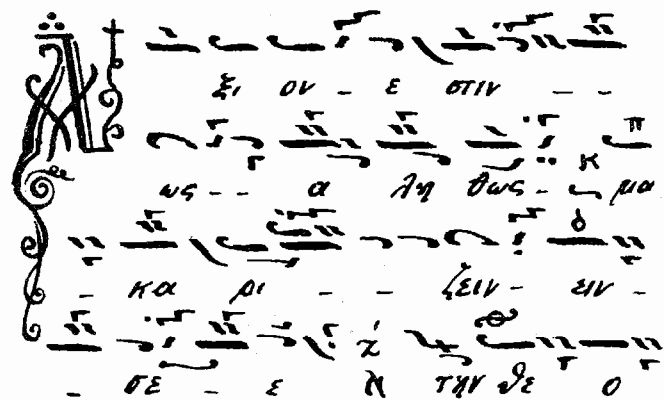 Α ξι ον - ε στιν - -
ως - - α λη θως - μα
- κα ρι - - ζειν - ειν -
- σε - ε την θε ο